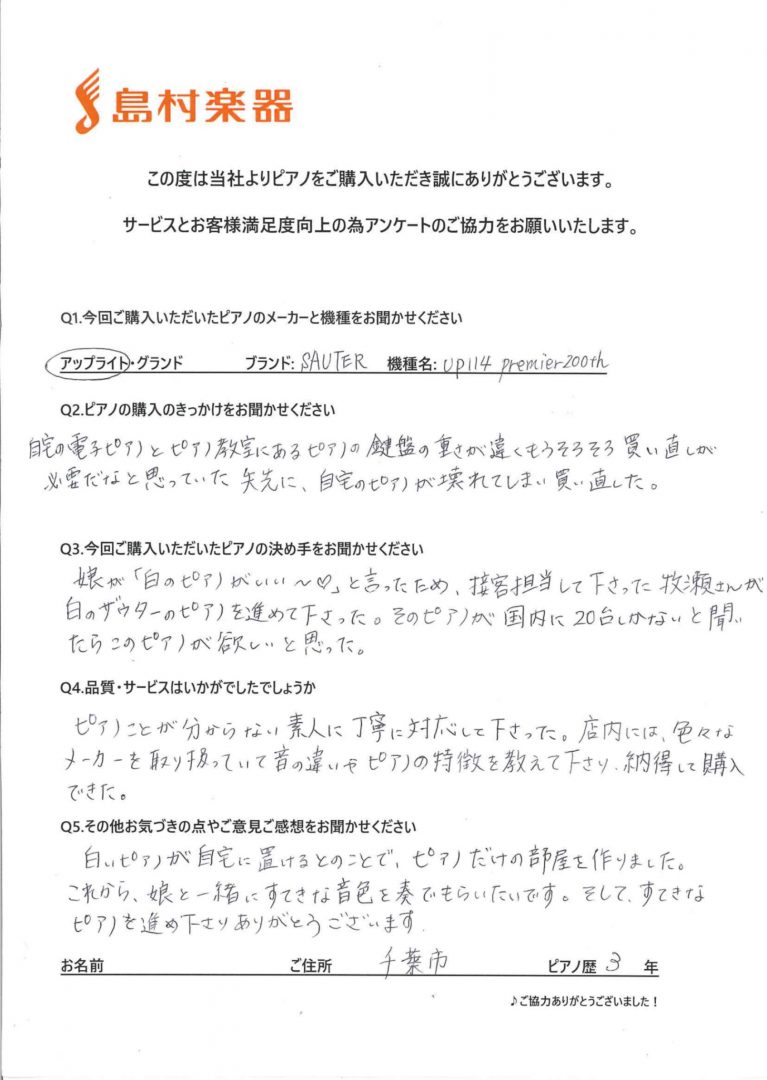 島村楽器
この度は当社よりピアノをご購入いただき誠にありがとうございます。
サービスとお客様満足度向上の為アンケートのご協力をお願いいたします。
Q1.今回ご購入いただいたピアノのメーカーと機種をお聞かせください
アップライト・グランド ブランド: SAUTER 機種名: up114 premier200th
Q2.ピアノの購入のきっかけをお聞かせください
自宅の電子ピアノとピアノ教室にあるピアノの鍵盤の重さが違くもうそろそろ買い直しが
必要だなと思っていた矢先に、自宅のピアノが壊れてしまい買い直した。
Q3.今回ご購入いただいたピアノの決め手をお聞かせください
娘が「白のピアノがいい～♡」と言ったため、接客担当して下さった牧瀬さんが
白のザウターのピアノを進めて下さった。そのピアノが国内に20台しかないと聞い
たらこのピアノが欲しいと思った。
Q4.品質・サービスはいかがでしたでしょうか
ピアノことが分からない素人に丁寧に対応して下さった。店内には、色々な
メーカーを取り扱っていて音の違いやピアノの特徴を教えて下さり、納得して購入
できた。
Q5.その他お気づきの点やご意見ご感想をお聞かせください
白いピアノが自宅に置けるとのことで、ピアノだけの部屋を作りました。
これから、娘と一緒にすてきな音色を奏でもらいたいです。そして、すてきな
ピアノを進め下さりありがとうございます.
お名前 ご住所 千葉市 ピアノ歴 3 年
♪ご協力ありがとうございました！